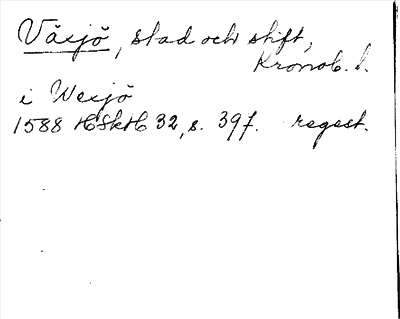 Växjö, stad och stift,
Kronob. l.
i Wexjö
1588 HSkH 32, s. 397. regest.